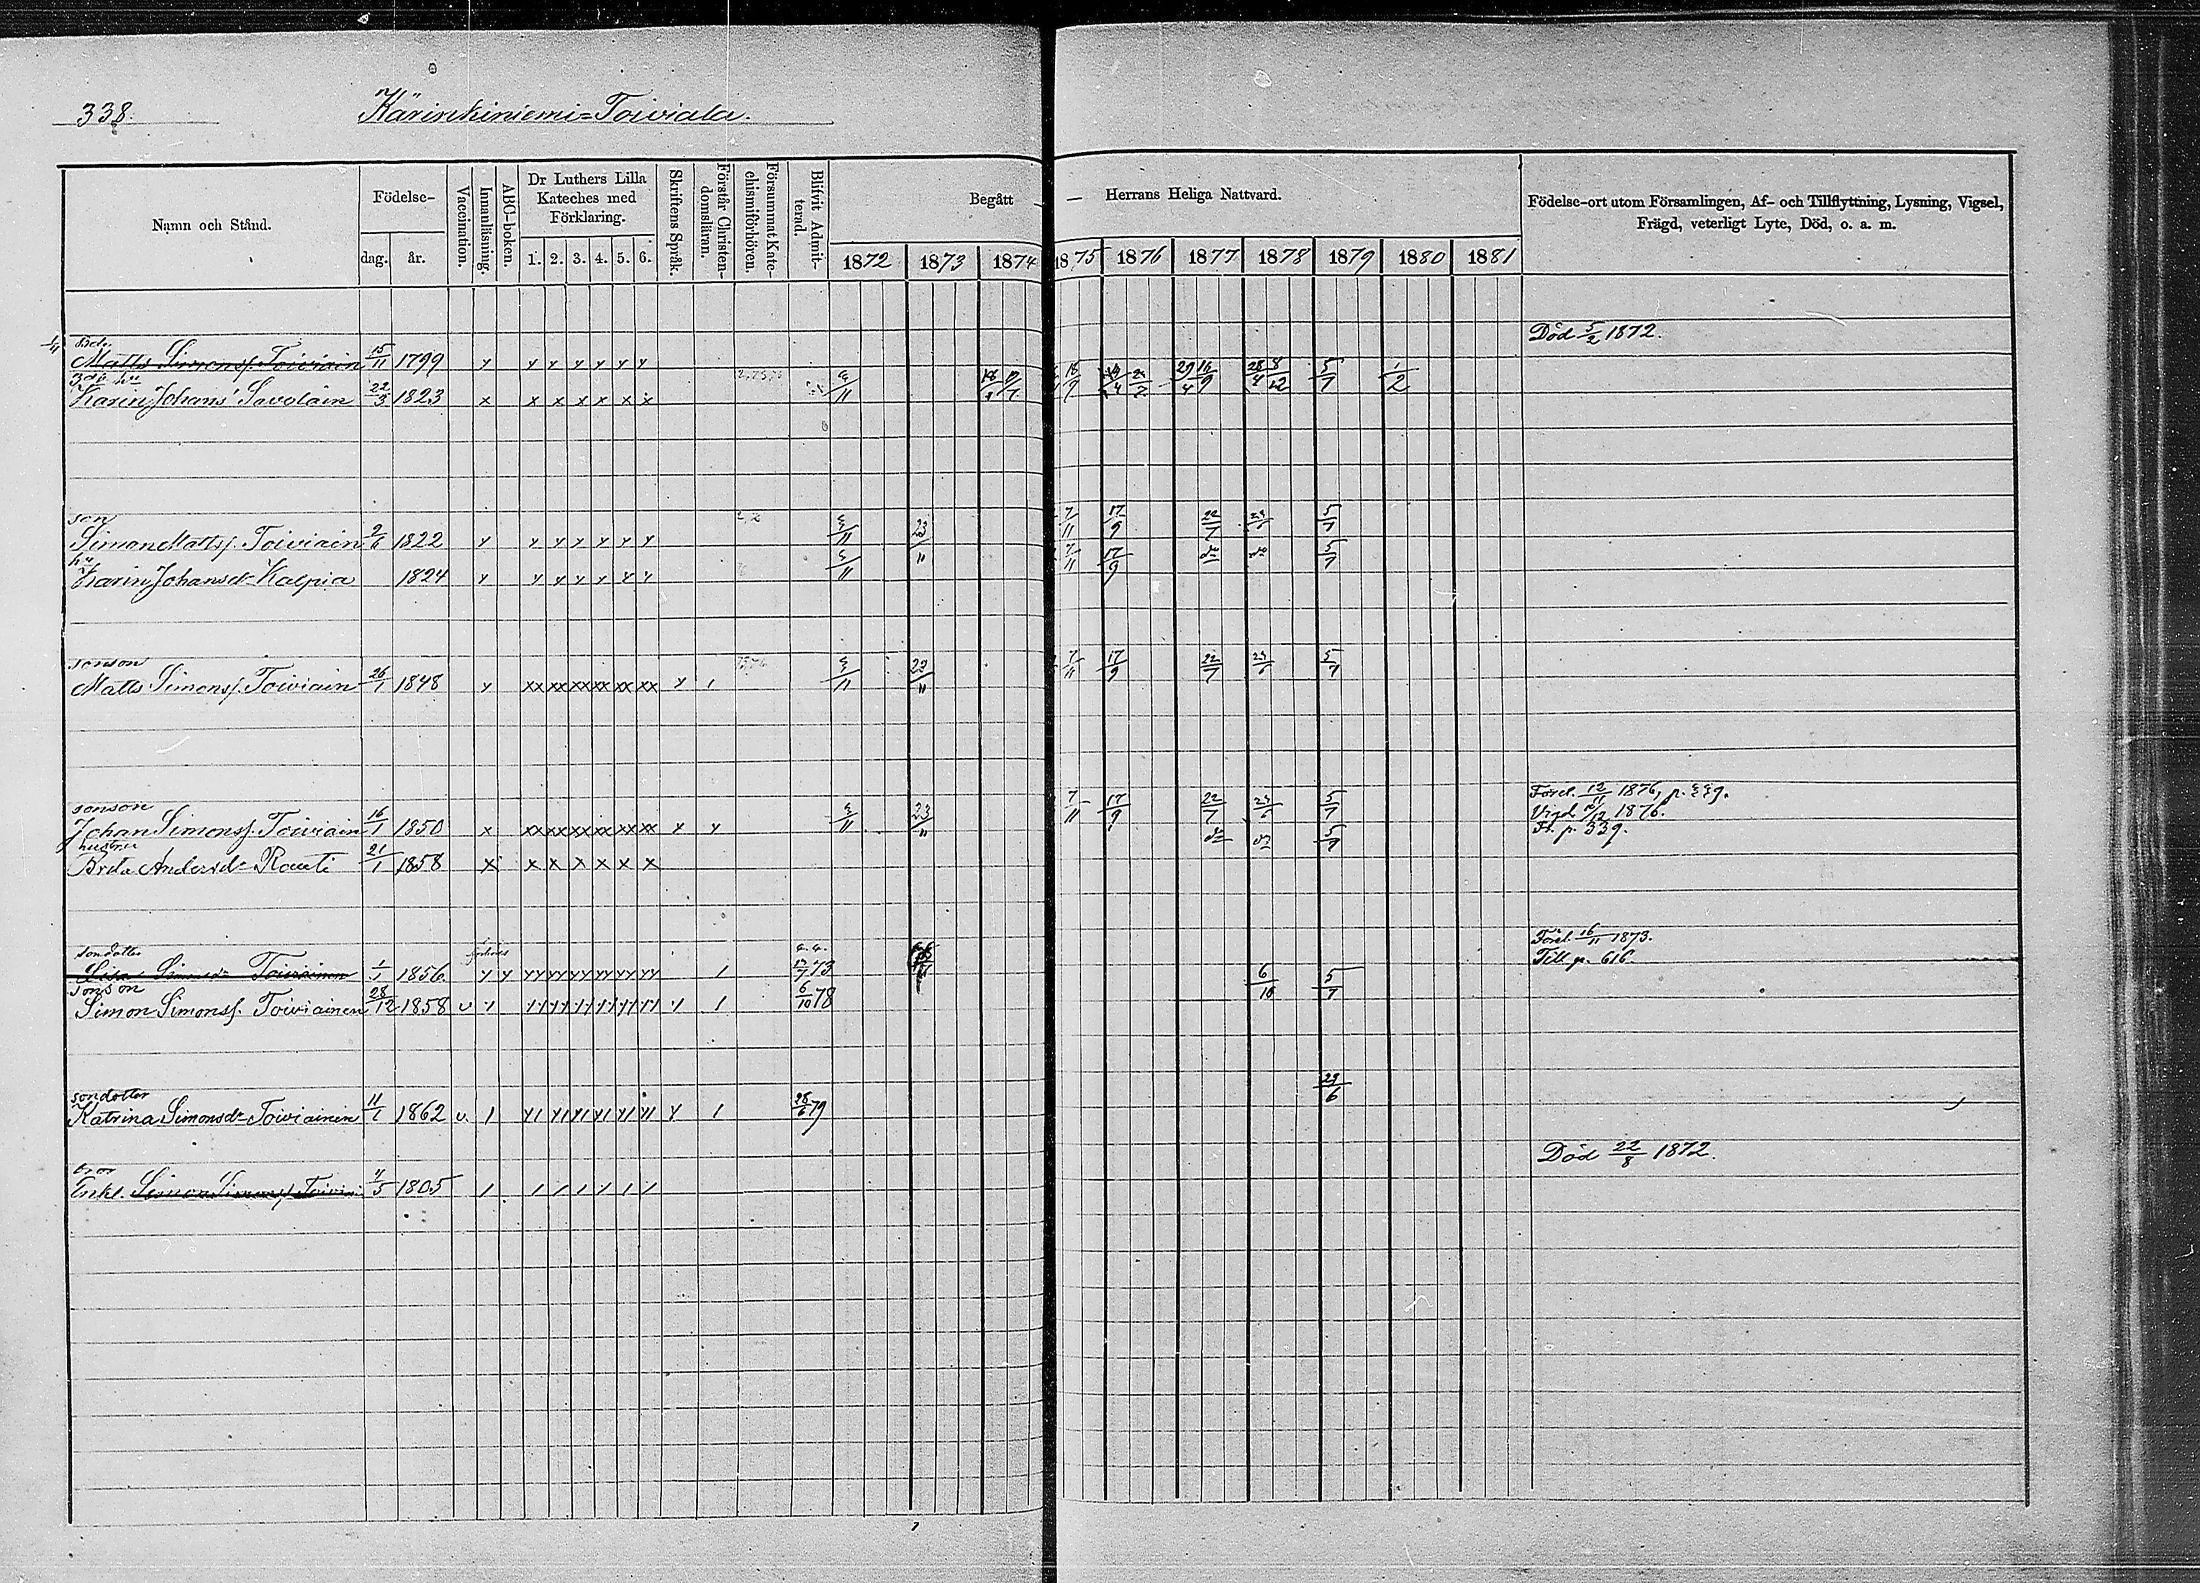 338.
Kärinkiniemi=Toiviala.
Namn och Stånd.
Födelse-
dag.
år.
Vaccination.
Innanläsning.
ABC-boken.
Dr Luthers Lilla
Kateches med
Förklaring.
1. 2. 3. 4. 5. 6.
Skriftens Språk.
Förstår Christen-
domsläran.
Försummat Kate-
chismiförhören.
Blifvit Admit-
terad.
Begått — Herrans Heliga Nattvard.
1872 1873 1874 1875 1876 1877 1878 1879 1880 1881
Födelse-ort utom Församlingen, Af- och Tillflyttning, Lysning, Vigsel,
Frägd, veterligt Lyte, Död, o. a. m.
Död 5/2 1872.
Matts Simonss. Toiviain 15/11 1799 y y y y y y y
Karin Johans Savolain 22/3 1823 x x x x x x x 18/9 5/7 1/2
son
Simon Mattss. Toiviain 2/6 1822 y y y y y y y 23/11 7/11 17/9 22/7 5/7
hu
Karin Johansdr Kalpia 1824 y y y y y y y 7/11 17/9 do do 5/7
sonson
Matts Simonss. Toiviain 26/1 1848 y xx xx xx xx xx xx y 1 23/11 7/11 17/9 22/7 5/7
sonson
Johan Simonss. Toiviain 16/1 1850 x xx xx xx xx xx xx y y 23/11 7/11 17/9 22/7 5/7
Vigd 1876.
Fr. p. 339.
hustru
Brita Andersdr Rauti 21/1 1858 x x x x x x x do do 5/7
Förel. 16/11 1873.
Till p. 616.
sondotter
Lisa Simonsdr Toiviainen 1/1 1856 y y yy yy yy yy yy yy 1 73
sonson
Simon Simonss. Toiviainen 28/12 1858 v 1 y1 y1 y1 y1 y1 y1 y 1 6/10 78 6/10 5/7
sondotter
Katrina Simonsdr Toiviainen 11/1 1862 v. 1 y1 y1 y1 y1 y1 y1 y 1 28/6 79 29/6
Död 22/8 1872.
bror
Enkl. Simon Simonss. Toivia 4/5 1805 1 1 1 1 1 1 1